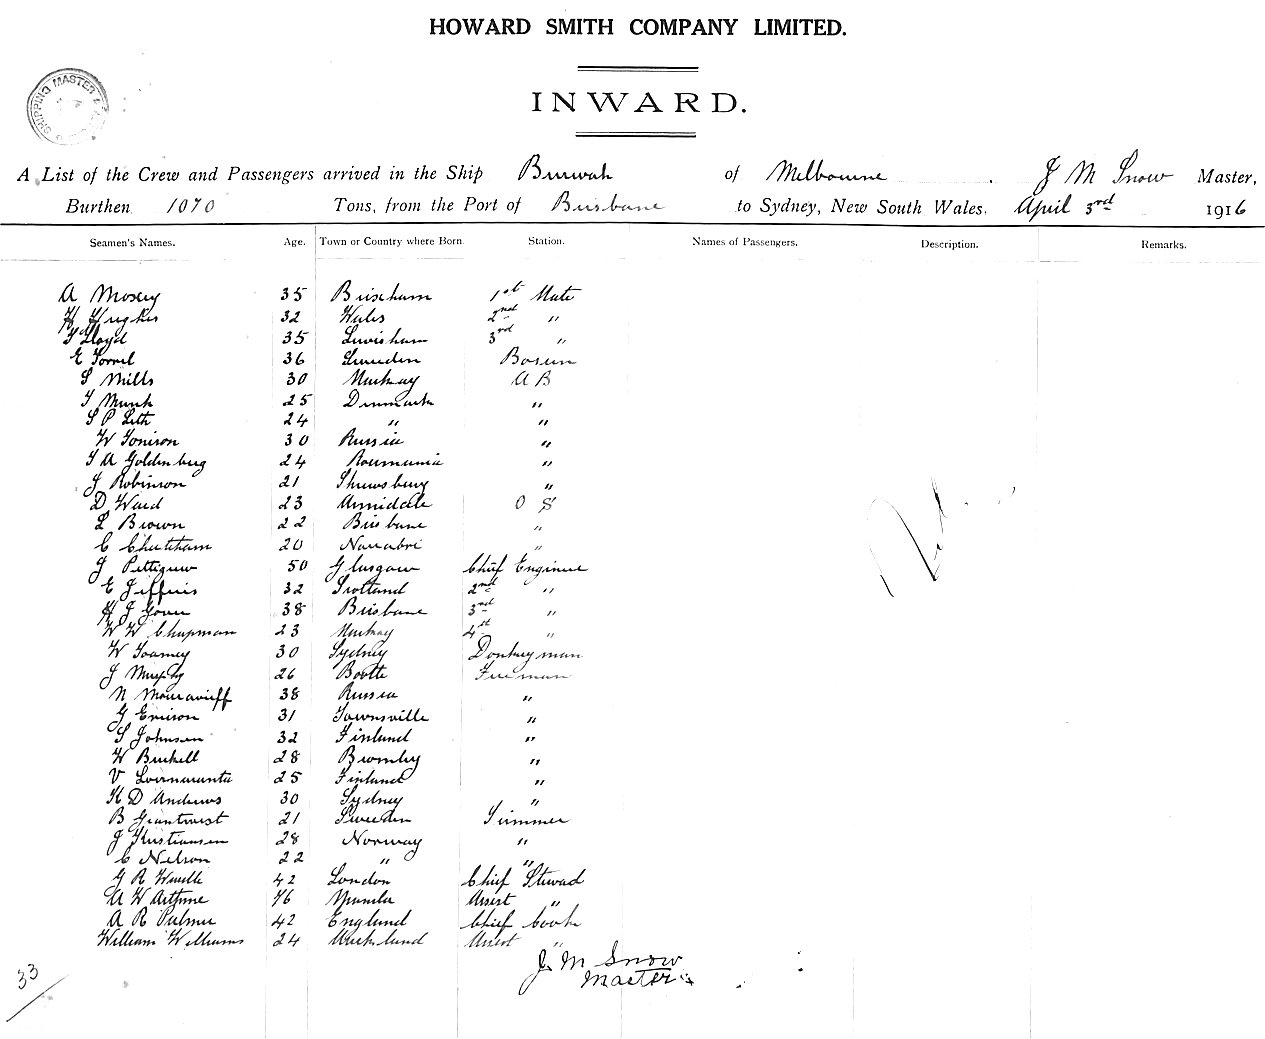 HOWARD SMITH COMPANY LIMITED.
SHIPPING MASTER
INWARD.
A List of the Crew and Passengers arrived in the Ship Burwah of Melbourne J M Snow Master,
Burthen 1070 Tons, from the Port of Brisbane to Sydney, New South Wales, April 3rd 1916
Seamen's Names. Age. Town or Country where Born. Station. Names of Passengers. Description. Remarks.
A Mosey 35 Brixham 1st Mate
H Hughes 32 Wales 2nd "
Lloyd 35 Lewisham 3rd "
E 36 Sweden Bosun
S Mills 30 Mackay A B
T Munk 25 Denmark "
S P Leth 24 " "
W Tonison 30 Russia "
T A Goldenberg 24 Roumania "
J Robinson 21 Shrewsbury "
D Ward 23 Armidale O S
L Brown 22 Brisbane "
C Cheetham 20 Narrabri "
J Pettigrew 50 Glasgow Chief Engineer
E Jefferis 32 Scotland 2nd "
H J 38 Brisbane 3rd "
W W Chapman 23 Mackay 4th "
W Toomey 30 Sydney Donkeyman
J Murphy 26 Bootle Fireman
N Mouravieff 38 Russia "
G Ericson 31 Townsville "
S Johnson 32 Finland "
W Buckell 28 Bromley "
V 25 Finland "
H D Andrews 30 Sydney "
B 21 Sweden Trimmer
J Kristiansen 28 Norway "
C Nelson 22 " "
G R 42 London Chief Steward
A W 46 Assist "
A R Palmer 42 England Chief Cook
William Williams 24 Auckland Assist "
J. M Snow
Master
33
Nil